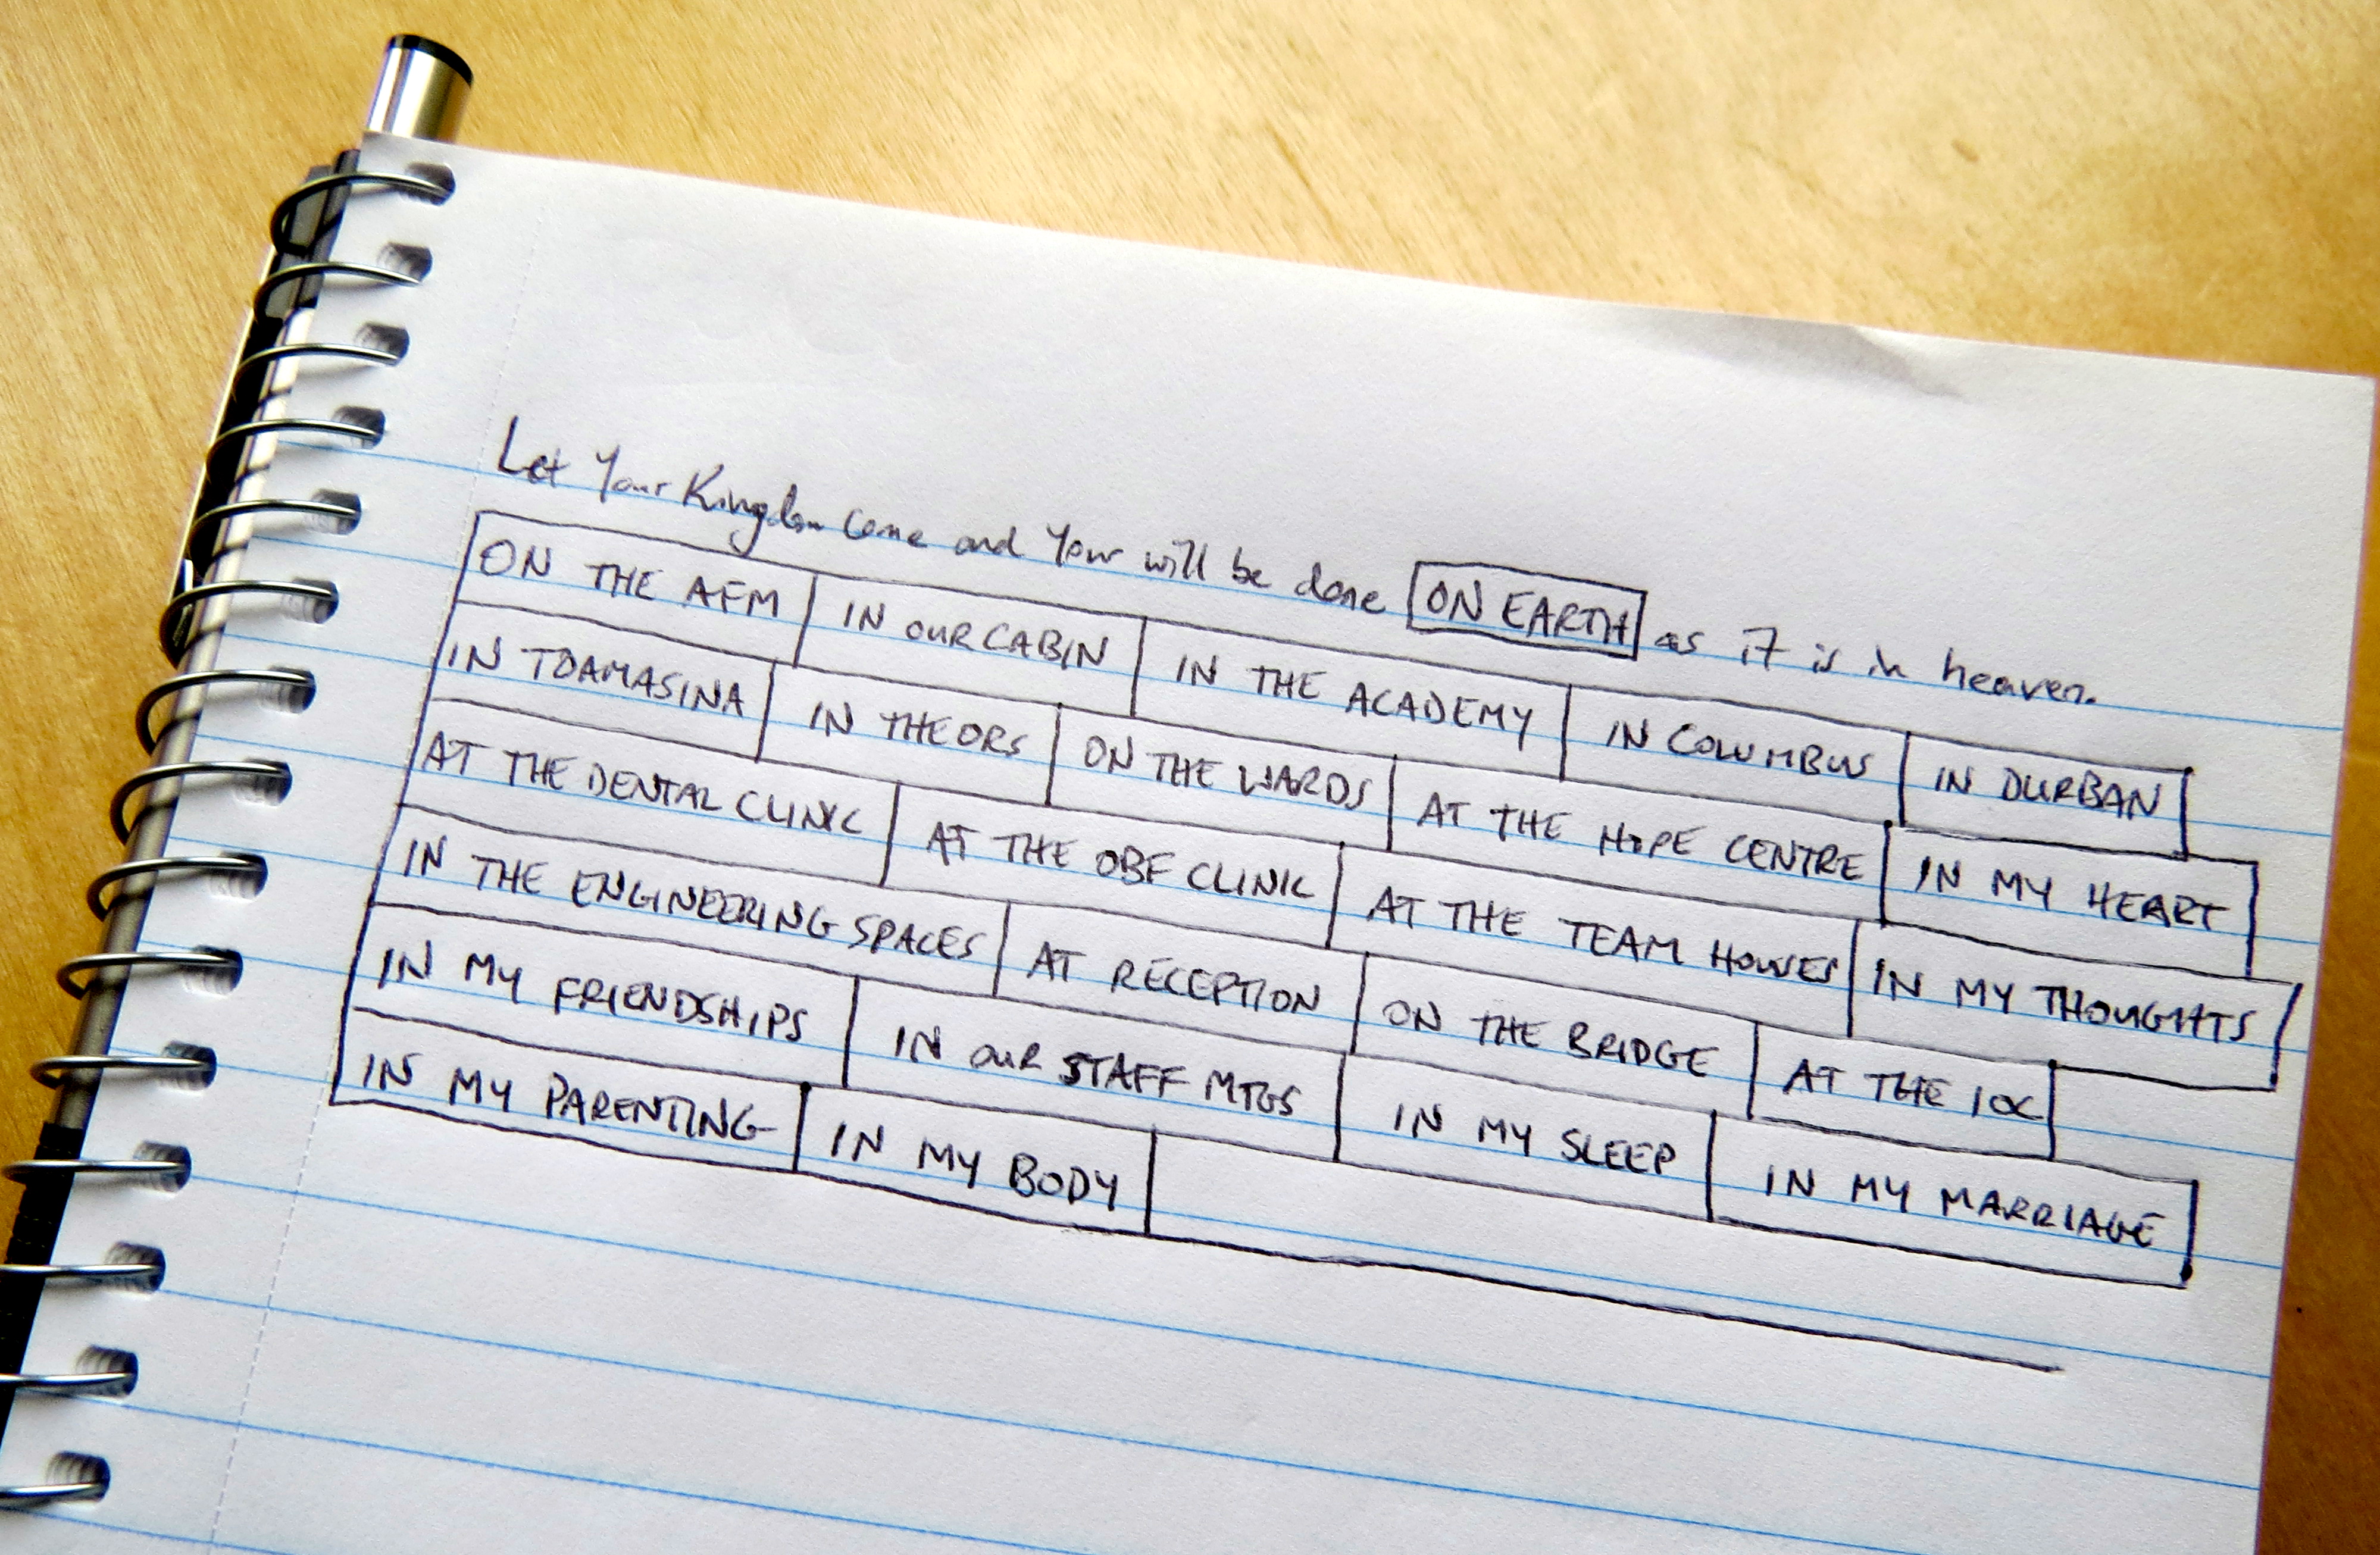 Let Your Kingdom come and Your will be done ON EARTH as it is in heaven.
ON THE AFM IN OUR CABIN IN THE ACADEMY IN COLUMBUS IN DURBAN
IN TOAMASINA IN THE ORS ON THE WARDS AT THE HOPE CENTRE IN MY HEART
AT THE DENTAL CLINIC AT THE OBF CLINIC AT THE TEAM HOUSES IN MY THOUGHTS
IN THE ENGINEERING SPACES AT RECEPTION ON THE BRIDGE AT THE
IN MY FRIENDSHIPS IN OUR STAFF MTGS IN MY SLEEP IN MY MARRIAGE
IN MY PARENTING IN MY BODY